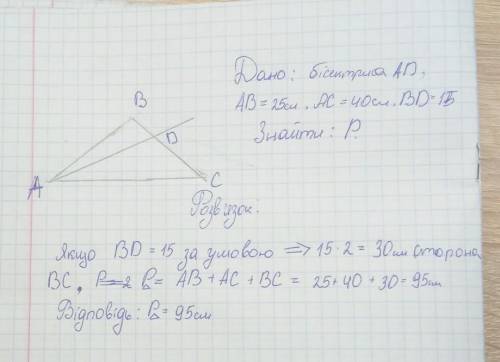 Дано: бісектриса AD,
AB = 25см, AC = 40см, BD = 15
Знайти: P.
B
D
A
C
Розв'язок.
Якщо BD = 15 за умовою => 15 · 2 = 30 см сторона
BC, P = AB + AC + BC = 25 + 40 + 30 = 95см
Відповідь: P = 95см